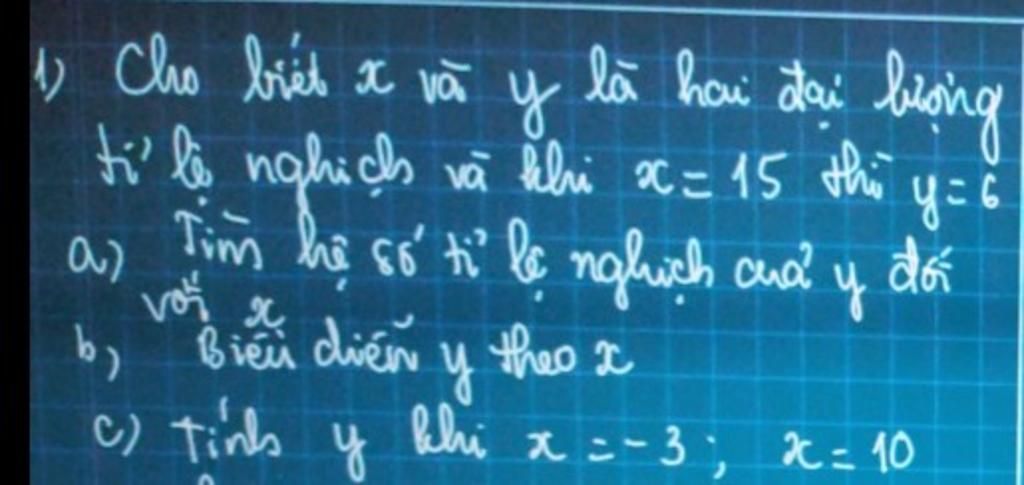 1) Cho biết x và y là hai đại lượng
tỉ lệ nghịch và khi x = 15 thì y = 6
a) Tìm hệ số tỉ lệ nghịch của y đối
với x
b) Biểu diễn y theo x
c) Tính y khi x = -3; x = 10